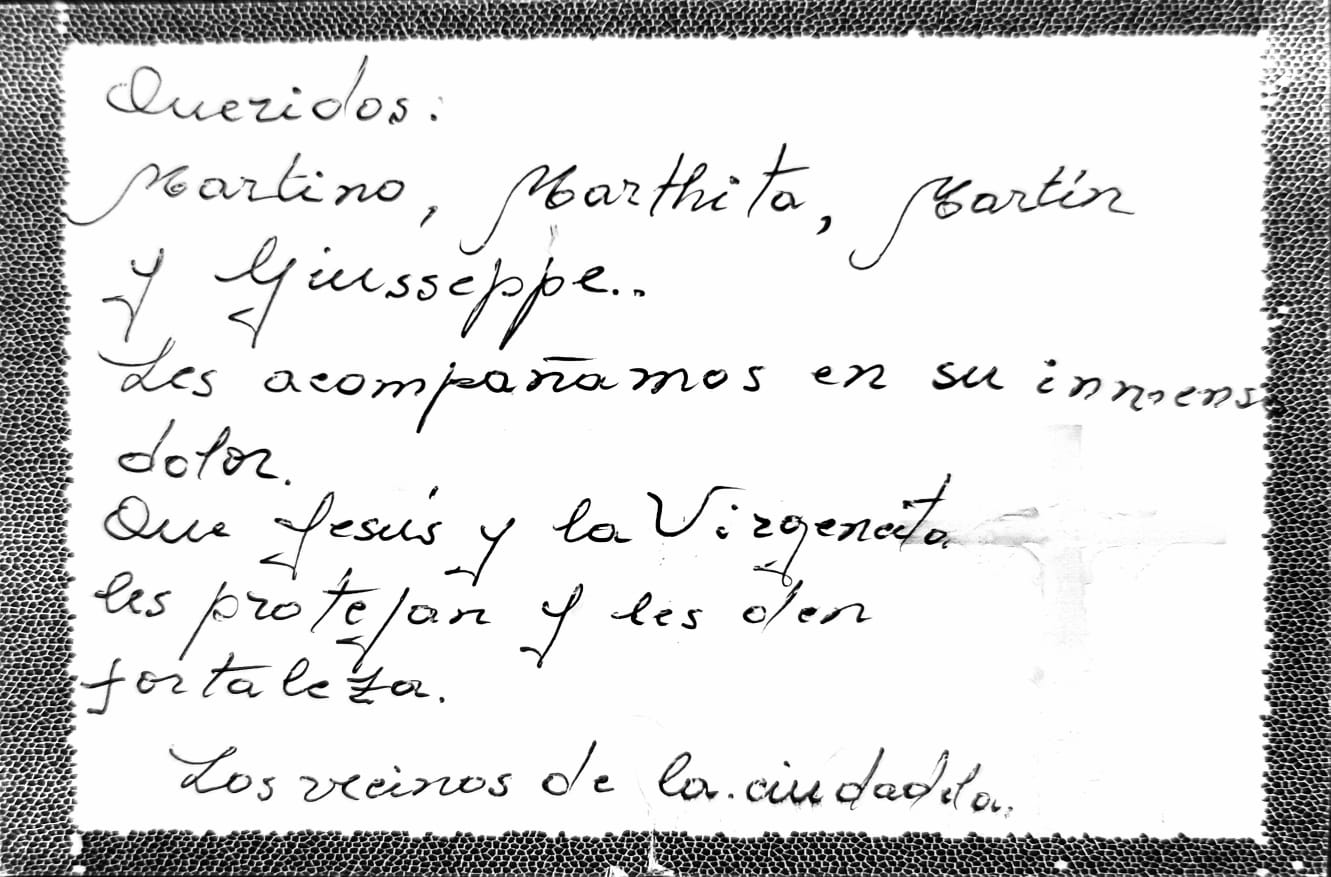 Queridos:
Martino, Marthita, Martín
y Giusseppe..
Les acompañamos en su inmens
dolor.
Que Jesús y la Virgencita
les protejan y les den
fortaleza.
Los vecinos de la ciudadela.